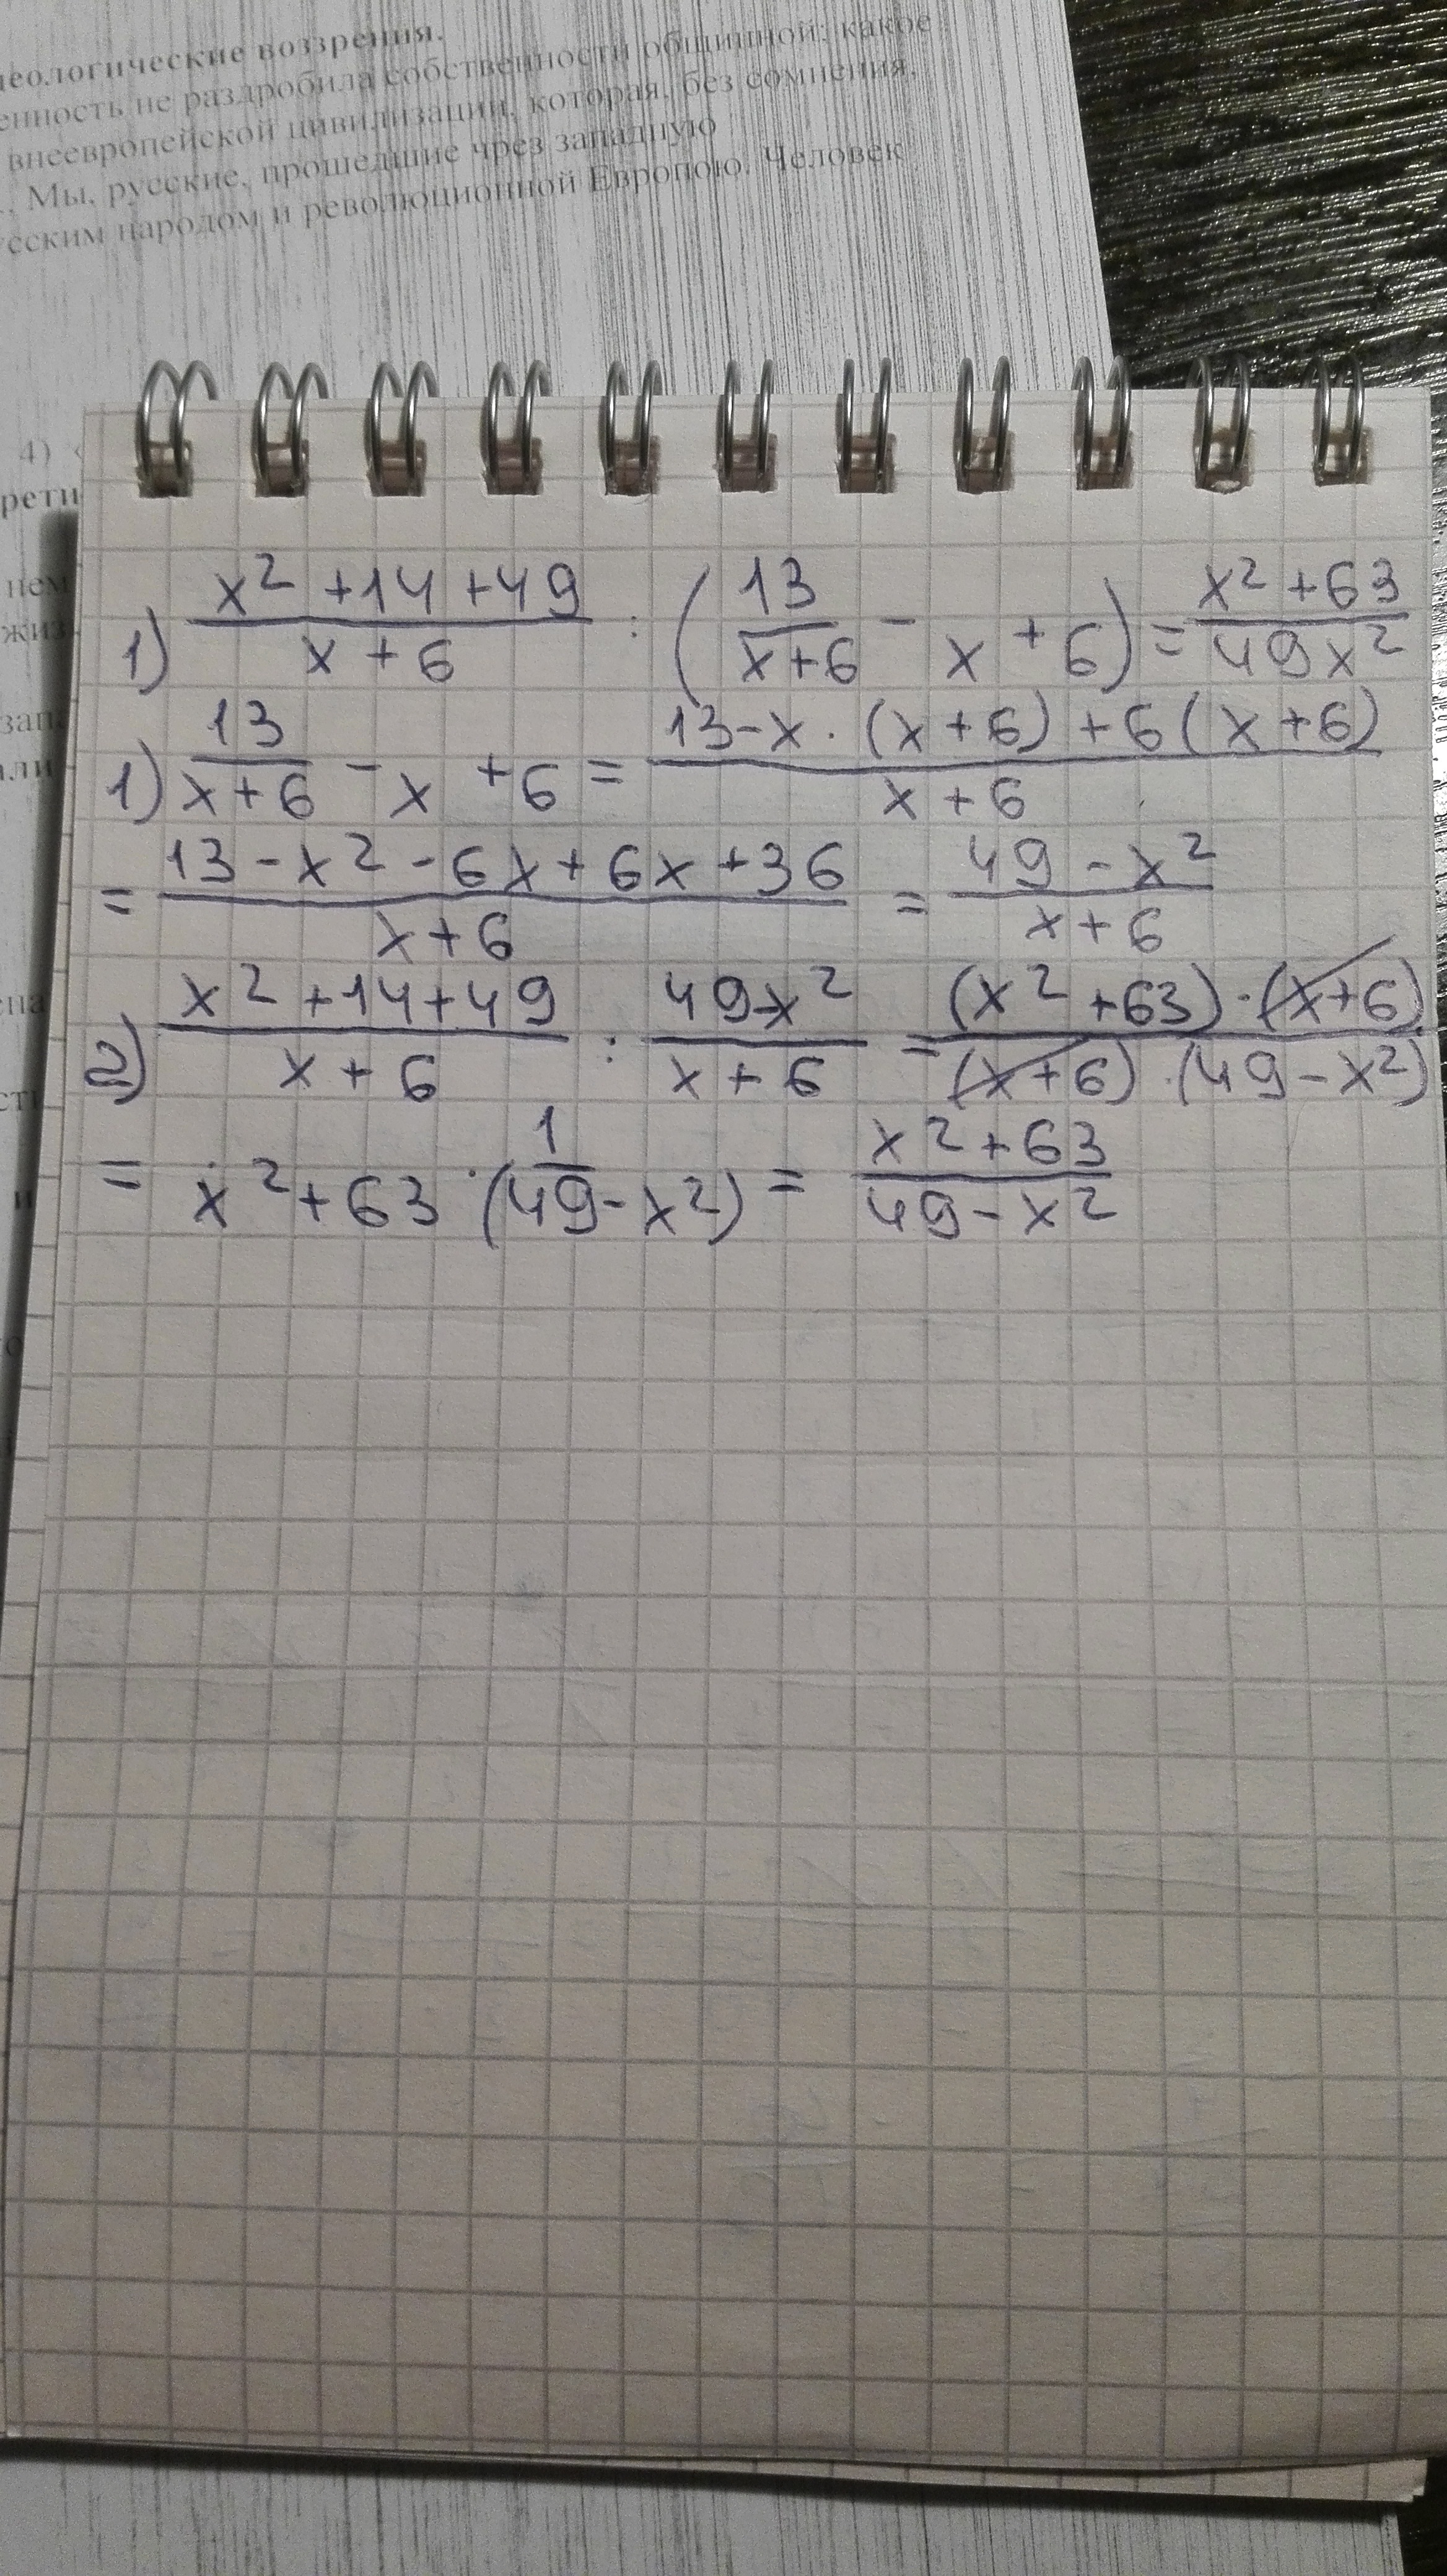 деологические воззрения.
енность не раздробила собственности общинной; какое
внеевропейской цивилизации, которая, без сомнения,
Мы, русские, прошедшие чрез западную
усским народом и революционной Европою. Человек
4)
рети
нем
жиз
1) (x² + 14 + 49)/(x + 6) : (13/(x+6) - x + 6) = (x² + 63)/(49x²)
1) 13/(x+6) - x + 6 = (13 - x · (x + 6) + 6 (x + 6))/(x + 6)
= (13 - x² - 6x + 6x + 36)/(x + 6) = (49 - x²)/(x + 6)
2) (x² + 14 + 49)/(x + 6) : (49-x²)/(x + 6) = ((x² + 63) · (x+6))/((x+6) · (49 - x²))
= x² + 63 · 1/(49 - x²) = (x² + 63)/(49 - x²)